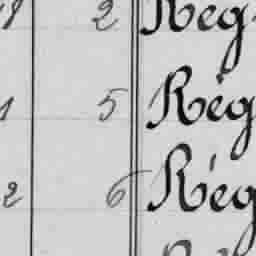 8 2 Rég
1 5 Rég
2 6 Rég